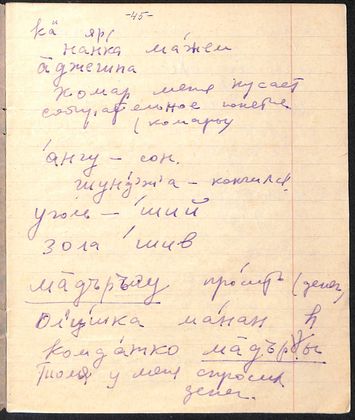 -45-
кӓ яр/
нанка ма́жем
а̄джегина
комар меня кусает
собирательное понятие
(комары
а́нгу – сон.
шунджа – кончился
уголь – ́ший
зола ́шив
ма̄дъръгу просить (денег
Олӱшка ма́нан
комда́тко ма̄дърғы
Толя у меня спросил
денег.